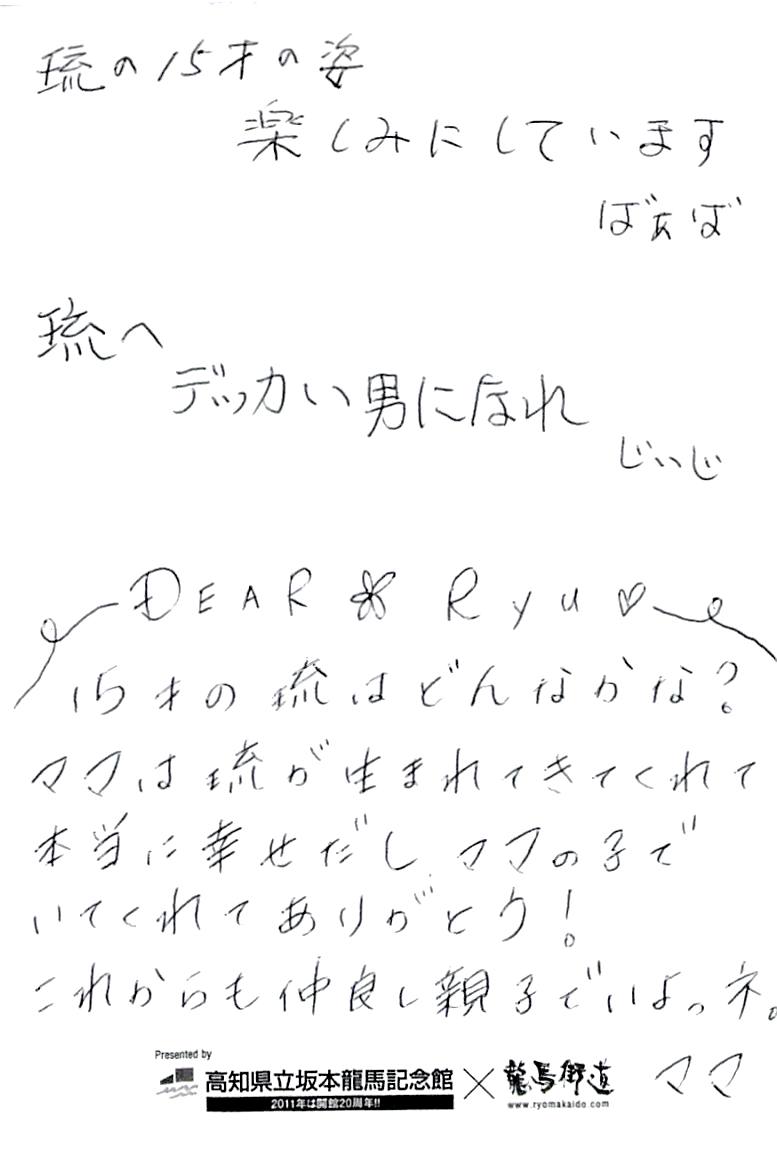 琉の15才の姿
楽しみにしています
ばぁば
琉へ
デッカい男になれ
じいじ
DEAR Ryu♡
15才の琉はどんなかな?
ママは琉が生まれてきてくれて
本当に幸せだし、ママの子で
いてくれてありがとう!
これからも仲良し親子でいよっネ。
ママ
Presented by
高知県立坂本龍馬記念館×龍馬街道
2011年は開館20周年!!
www.ryomakaido.com